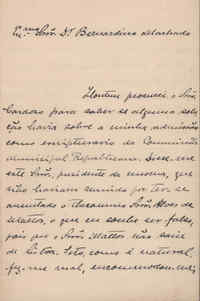 Exmo Snr. Dr. Bernardino Machado
Hontem procurei o Snr.
Cardoso para saber se alguma solu-
ção havia sobre a minha admissão
como escripturario da Commissão
Municipal Republicana. Disse-me
este Snr., presidente da mesma, que
não haviam reunido por ter-se
ausentado o thesoureiro Snr. Alves de
Mattos, o que eu soube ser falso,
pois que o Snr. Mattos não saiu
de Lisboa. Isto, como é natural,
fez-me mal, encommodou-me,